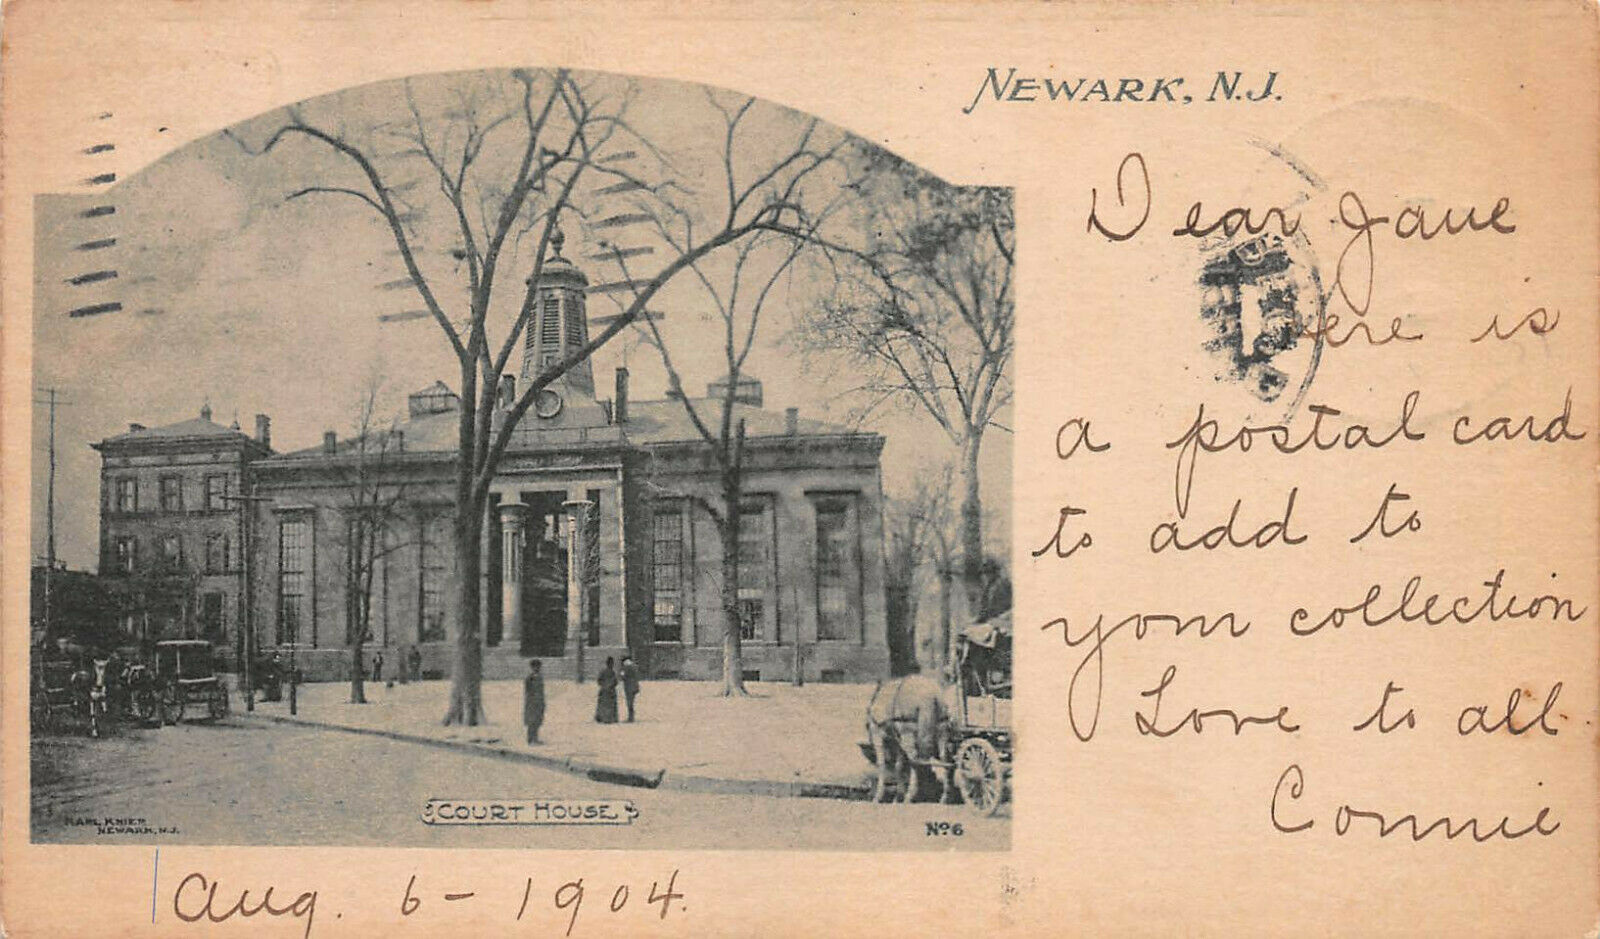 NEWARK, N.J.
Dear Jane
Here is
a postal card
to add to
your collection
Love to all
Connie
KARL KNIER
NEWARK, N.J.
COURT HOUSE
Nº 6
Aug. 6 - 1904.